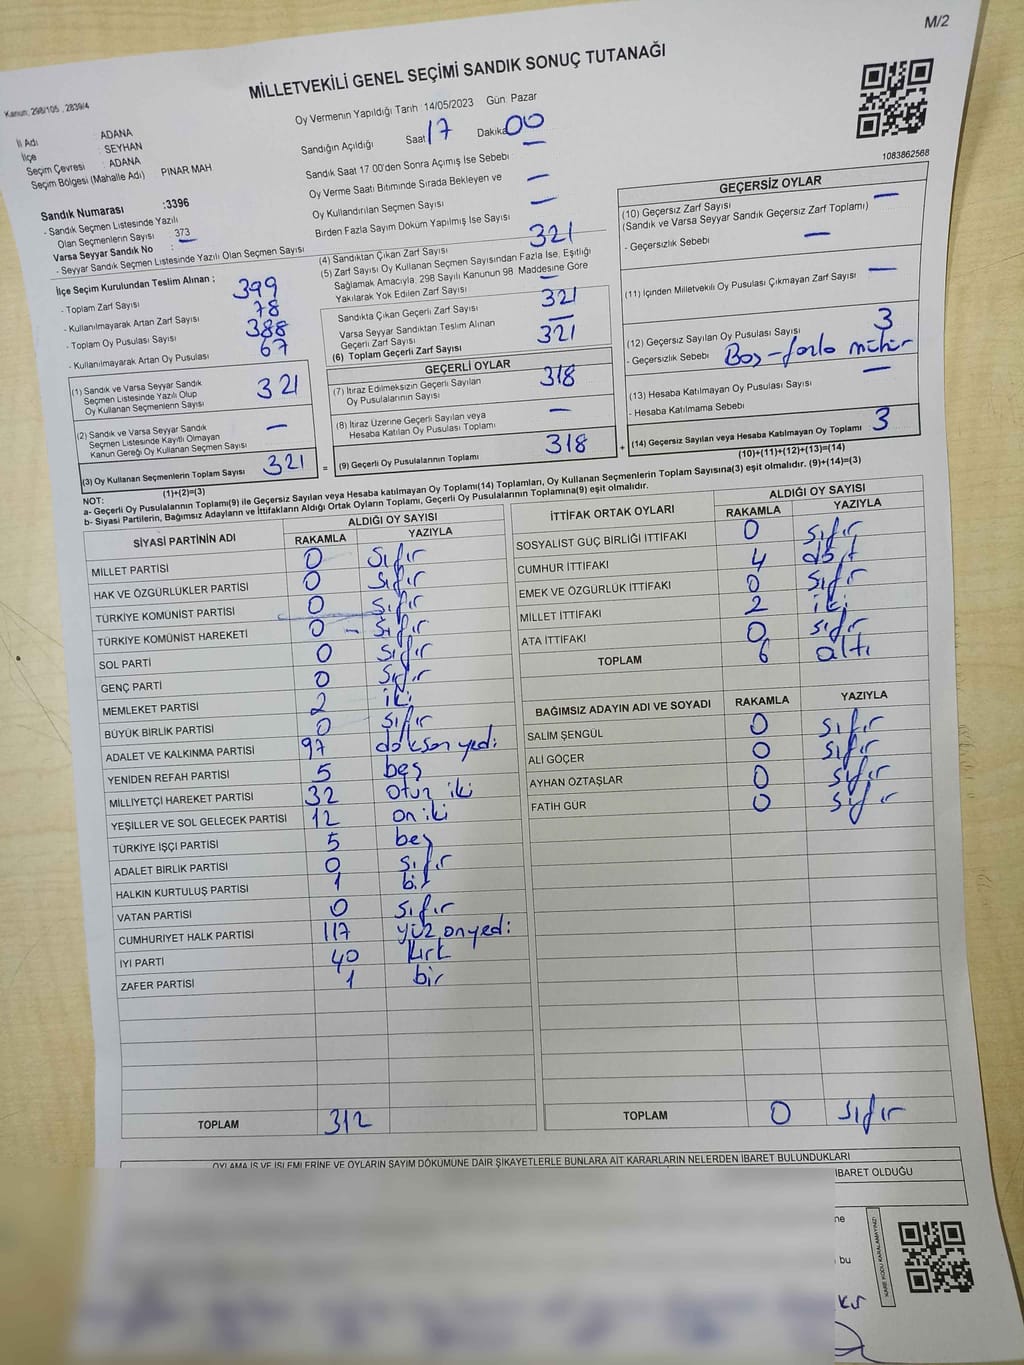 M/2
Kanun: 298/105 , 2839/4
MİLLETVEKİLİ GENEL SEÇİMİ SANDIK SONUÇ TUTANAĞI
1083862568
İl Adı : ADANA
İlçe : SEYHAN
Seçim Çevresi : ADANA
Seçim Bölgesi (Mahalle Adı) PINAR MAH
Sandık Numarası :3396
- Sandık Seçmen Listesinde Yazılı
Olan Seçmenlerin Sayısı : 373
Varsa Seyyar Sandık No : –
- Seyyar Sandık Seçmen Listesinde Yazılı Olan Seçmen Sayısı
Oy Vermenin Yapıldığı Tarih 14/05/2023 Gün: Pazar
Sandığın Açıldığı Saat 17 Dakika 00
Sandık Saat 17 00'den Sonra Açımış İse Sebebi –
Oy Verme Saati Bitiminde Sırada Bekleyen ve
Oy Kullandırılan Seçmen Sayısı –
Birden Fazla Sayım Döküm Yapılmış İse Sayısı –
İlçe Seçim Kurulundan Teslim Alınan ;
- Toplam Zarf Sayısı 399
- Kullanılmayarak Artan Zarf Sayısı 78
- Toplam Oy Pusulası Sayısı 388
- Kullanılmayarak Artan Oy Pusulası 67
(1) Sandık ve Varsa Seyyar Sandık
Seçmen Listesinde Yazılı Olup
Oy Kullanan Seçmenlerin Sayısı 321
(2) Sandık ve Varsa Seyyar Sandık
Seçmen Listesinde Kayıtlı Olmayan
Kanun Gereği Oy Kullanan Seçmen Sayısı –
(3) Oy Kullanan Seçmenlerin Toplam Sayısı 321 =
(1)+(2)=(3)
(4) Sandıktan Çıkan Zarf Sayısı 321
(5) Zarf Sayısı Oy Kullanan Seçmen Sayısından Fazla İse, Eşitliği
Sağlamak Amacıyla, 298 Sayılı Kanunun 98. Maddesine Göre
Yakılarak Yok Edilen Zarf Sayısı –
Sandıkta Çıkan Geçerli Zarf Sayısı 321
Varsa Seyyar Sandıktan Teslim Alınan
Geçerli Zarf Sayısı –
(6) Toplam Geçerli Zarf Sayısı 321
GEÇERLİ OYLAR
(7) İtiraz Edilmeksizin Geçerli Sayılan
Oy Pusulalarının Sayısı 318
(8) İtiraz Üzerine Geçerli Sayılan veya
Hesaba Katılan Oy Pusulası Toplamı –
(9) Geçerli Oy Pusulalarının Toplamı 318 +
GEÇERSİZ OYLAR
(10) Geçersiz Zarf Sayısı –
(Sandık ve Varsa Seyyar Sandık Geçersiz Zarf Toplamı)
- Geçersizlik Sebebi –
(11) İçinden Milletvekili Oy Pusulası Çıkmayan Zarf Sayısı –
(12) Geçersiz Sayılan Oy Pusulası Sayısı 3
- Geçersizlik Sebebi Boş-fazla mühür
(13) Hesaba Katılmayan Oy Pusulası Sayısı –
- Hesaba Katılmama Sebebi
(14) Geçersiz Sayılan veya Hesaba Katılmayan Oy Toplamı 3
(10)+(11)+(12)+(13)=(14)
NOT:
a- Geçerli Oy Pusulalarının Toplamı(9) ile Geçersiz Sayılan veya Hesaba katılmayan Oy Toplamı(14) Toplamları, Oy Kullanan Seçmenlerin Toplam Sayısına(3) eşit olmalıdır. (9)+(14)=(3)
b- Siyasi Partilerin, Bağımsız Adayların ve İttifakların Aldığı Ortak Oyların Toplamı, Geçerli Oy Pusulalarının Toplamına(9) eşit olmalıdır.
SİYASİ PARTİNİN ADI ALDIĞI OY SAYISI
RAKAMLA YAZIYLA
MİLLET PARTİSİ 0 sıfır
HAK VE ÖZGÜRLÜKLER PARTİSİ 0 sıfır
TÜRKİYE KOMÜNİST PARTİSİ 0 sıfır
TÜRKİYE KOMÜNİST HAREKETİ 0 – sıfır
SOL PARTİ 0 sıfır
GENÇ PARTİ 0 sıfır
MEMLEKET PARTİSİ 2 iki
BÜYÜK BİRLİK PARTİSİ 0 sıfır
ADALET VE KALKINMA PARTİSİ 97 doksan yedi
YENİDEN REFAH PARTİSİ 5 beş
MİLLİYETÇİ HAREKET PARTİSİ 32 otuz iki
YEŞİLLER VE SOL GELECEK PARTİSİ 12 on iki
TÜRKİYE İŞÇİ PARTİSİ 5 beş
ADALET BİRLİK PARTİSİ 0 sıfır
HALKIN KURTULUŞ PARTİSİ 1 bir
VATAN PARTİSİ 0 sıfır
CUMHURİYET HALK PARTİSİ 117 yüz onyedi
İYİ PARTİ 40 kırk
ZAFER PARTİSİ 1 bir
TOPLAM 312
İTTİFAK ORTAK OYLARI ALDIĞI OY SAYISI
RAKAMLA YAZIYLA
SOSYALİST GÜÇ BİRLİĞİ İTTİFAKI 0 sıfır
CUMHUR İTTİFAKI 4 dört
EMEK VE ÖZGÜRLÜK İTTİFAKI 0 sıfır
MİLLET İTTİFAKI 2 iki
ATA İTTİFAKI 0 sıfır
TOPLAM 6 altı
BAĞIMSIZ ADAYIN ADI VE SOYADI RAKAMLA YAZIYLA
SALİM ŞENGÜL 0 sıfır
ALİ GÖÇER 0 sıfır
AYHAN ÖZTAŞLAR 0 sıfır
FATİH GÜR 0 sıfır
TOPLAM 0 sıfır
OYLAMA İŞ VE İŞLEMLERİNE VE OYLARIN SAYIM DÖKÜMÜNE DAİR ŞİKAYETLERLE BUNLARA AİT KARARLARIN NELERDEN İBARET BULUNDUKLARI
İBARET OLDUĞU
ne
bu
KARE KODU KARALAMAYINIZ!